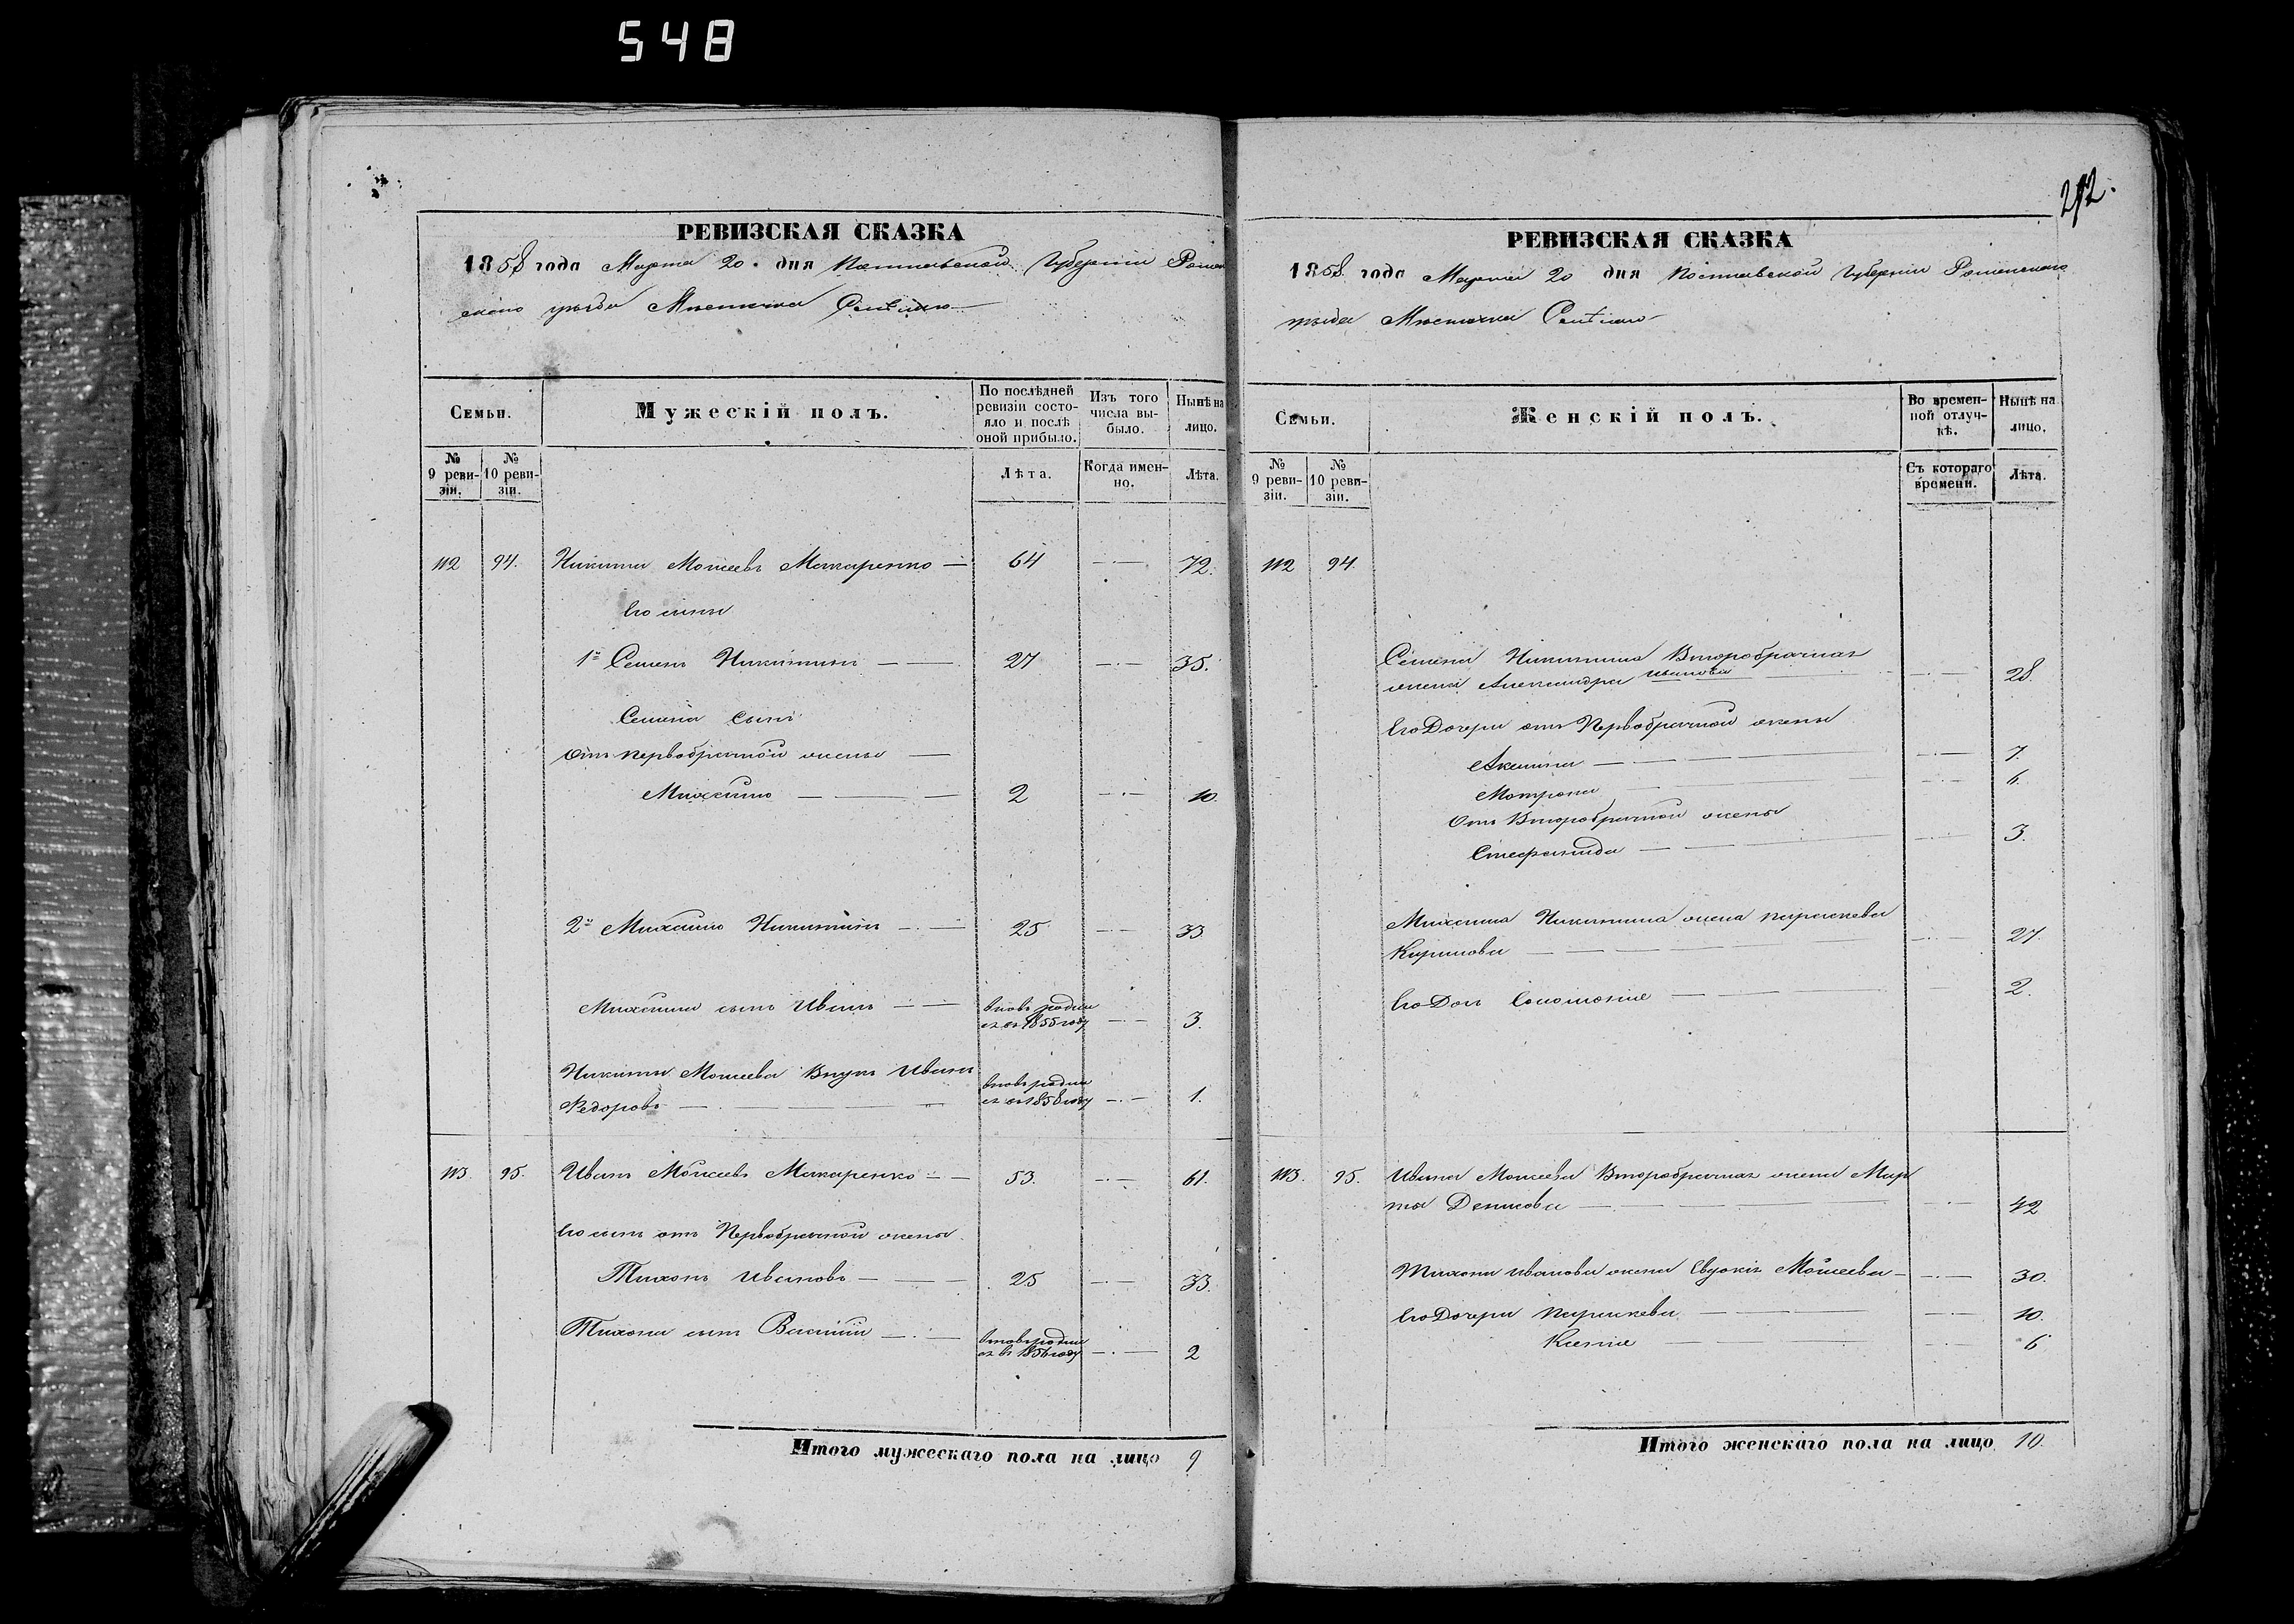 548
292.
РЕВИЗСКАЯ СКАЗКА
1858 года Марта 20 дня Полтавской Губерніи Ромен
скаго уѣзда Мѣстечка
Семьи.
Мужескій полъ.
По послѣдней ревизіи состо-
яло и послѣ оной прибыло.
Изъ того числа вы-
было.
Нынѣ на лицо.
№ 9 реви-
зіи.
№ 10 реви-
зіи.
Лѣта.
Когда имен-
но.
Лѣта.
112 94. Никита Моисеевъ Макаренко 64 72.
Его сыны
1й Семенъ Никитинъ 27 35.
Семена сынъ
отъ первобрачной жены
Михайло 2 10.
2й Михайло Никитинъ 25 33
Михайла сынъ Иванъ вновь родил
ся въ 1855 году 3.
Никиты Моисеева Внукъ Иванъ
Федоровъ вновь родил
ся въ 1858 году 1.
113. 95. Иванъ Моисеевъ Макаренко 53. 61.
Его сынъ отъ Первобрачной жены
Тихонъ Ивановъ 25 33.
Тихона сынъ Василій вновь родил
ся въ 1856 году 2
Итого мужескаго пола на лицо 9
РЕВИЗСКАЯ СКАЗКА
1858 года Марта 20 дня Полтавской Губерніи Роменскаго
уѣзда Мѣстечка
Семьи.
Женскій полъ.
Во времен-
ной отлуч-
кѣ.
Нынѣ на лицо.
№ 9 реви-
зіи.
№ 10 реви-
зіи.
Съ котораго времени.
Лѣта.
112 94.
Семена Никитина Второбрачная
жена Александра Иванова 28.
Его Дочери отъ Первобрачной жены
Акилина 7.
Мотрона 6.
Отъ Второбрачной жены
Стефанида 3.
Михайла Никитина жена Параскева
Кирилова 27.
Его Дочь Соломонія 2.
113. 95. Ивана Моисеева Второбрачная жена Мар
та Денисова 42
Тихона Иванова жена Евдокія Моисеева 30.
Его Дочери Параскева 10.
Ксенія 6
Итого женскаго пола на лицо 10.